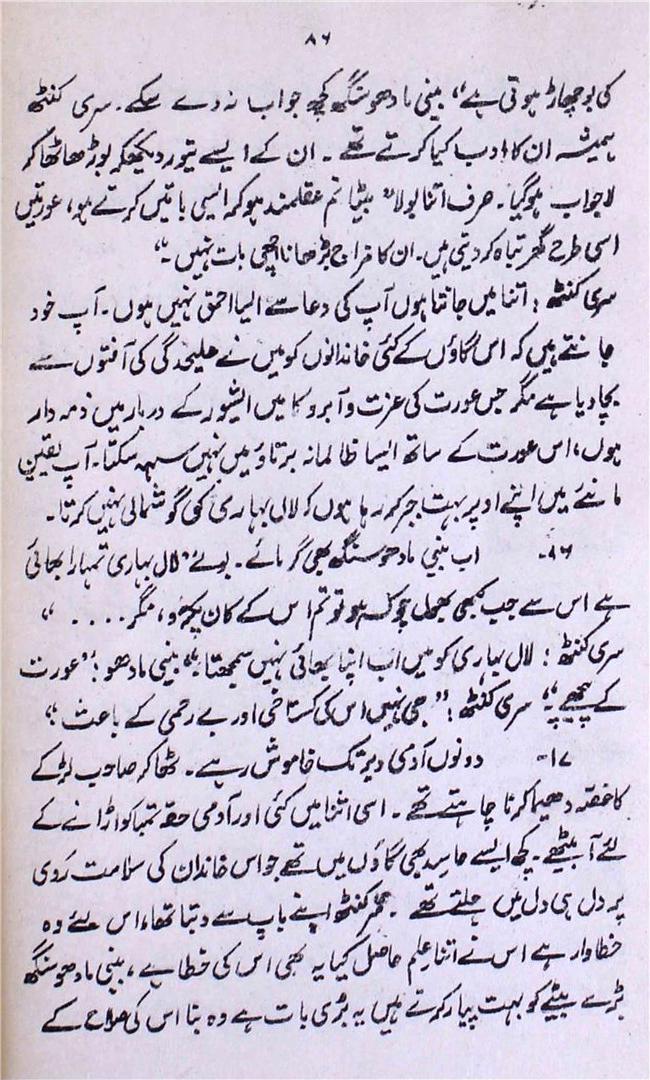 ۸۶
کی بوچھاڑ ہوتی ہے“ بینی مادھو سنگھ کچھ جواب نہ دے سکے۔ سری کنٹھ
ہمیشہ ان کا ادب کیا کرتے تھے۔ ان کے ایسے تیور دیکھکر بوڑھا ٹھاکر
لاجواب ہوگیا۔ صرف اتنا بولا ”بیٹا تم عقلمند ہوکر ایسی باتیں کرتے ہو، عورتیں
اسی طرح گھر تباہ کر دیتی ہیں۔ ان کا مزاج بڑھانا اچھی بات نہیں۔“
سری کنٹھ: اتنا میں جانتا ہوں آپ کی دعا سے ایسا احمق نہیں ہوں۔ آپ خود
جانتے ہیں کہ اس گاؤں کے کئی خاندانوں کو میں نے علیحدگی کی آفتوں سے
بچا دیا ہے مگر جس عورت کی عزت و آبرو کا میں ایشور کے دربار میں ذمہ دار
ہوں، اس عورت کے ساتھ ایسا ظالمانہ برتاؤ میں نہیں سہہ سکتا۔ آپ یقین
مانئے میں اپنے اوپر بہت جبر کر رہا ہوں کہ لال بہاری کی گوشمالی نہیں کرتا۔
۱۶۔ اب بینی مادھو سنگھ بھی گرمائے۔ بولے ”لال بہاری تمہارا بھائی
ہے اس سے جب کبھی بھول چوک ہو تو تم اس کے کان پکڑو، مگر ....“
سری کنٹھ: لال بہاری کو میں اب اپنا بھائی نہیں سمجھتا“ بینی مادھو: ”عورت
کے پیچھے“ سری کنٹھ: ”جی نہیں اس کی گستاخی اور بے رحمی کے باعث“
۱۷۔ دونوں آدمی دیر تک خاموش رہے۔ ٹھاکر صاحب لڑکے
کا غصہ دھیما کرنا چاہتے تھے۔ اسی اثنا میں کئی اور آدمی حقہ تمباکو اڑانے کے
لئے آ بیٹھے۔ کچھ ایسے حاسد بھی گاؤں میں تھے جو اس خاندان کی سلامت روی
پر دل ہی دل میں جلتے تھے۔ سری کنٹھ اپنے باپ سے دبتا تھا، اس لئے وہ
خطاوار ہے اس نے اتنا علم حاصل کیا یہ بھی اس کی خطا ہے، بینی مادھو سنگھ
بڑے بیٹے کو بہت پیار کرتے ہیں یہ بُری بات ہے وہ بنا اس کی صلاح کے